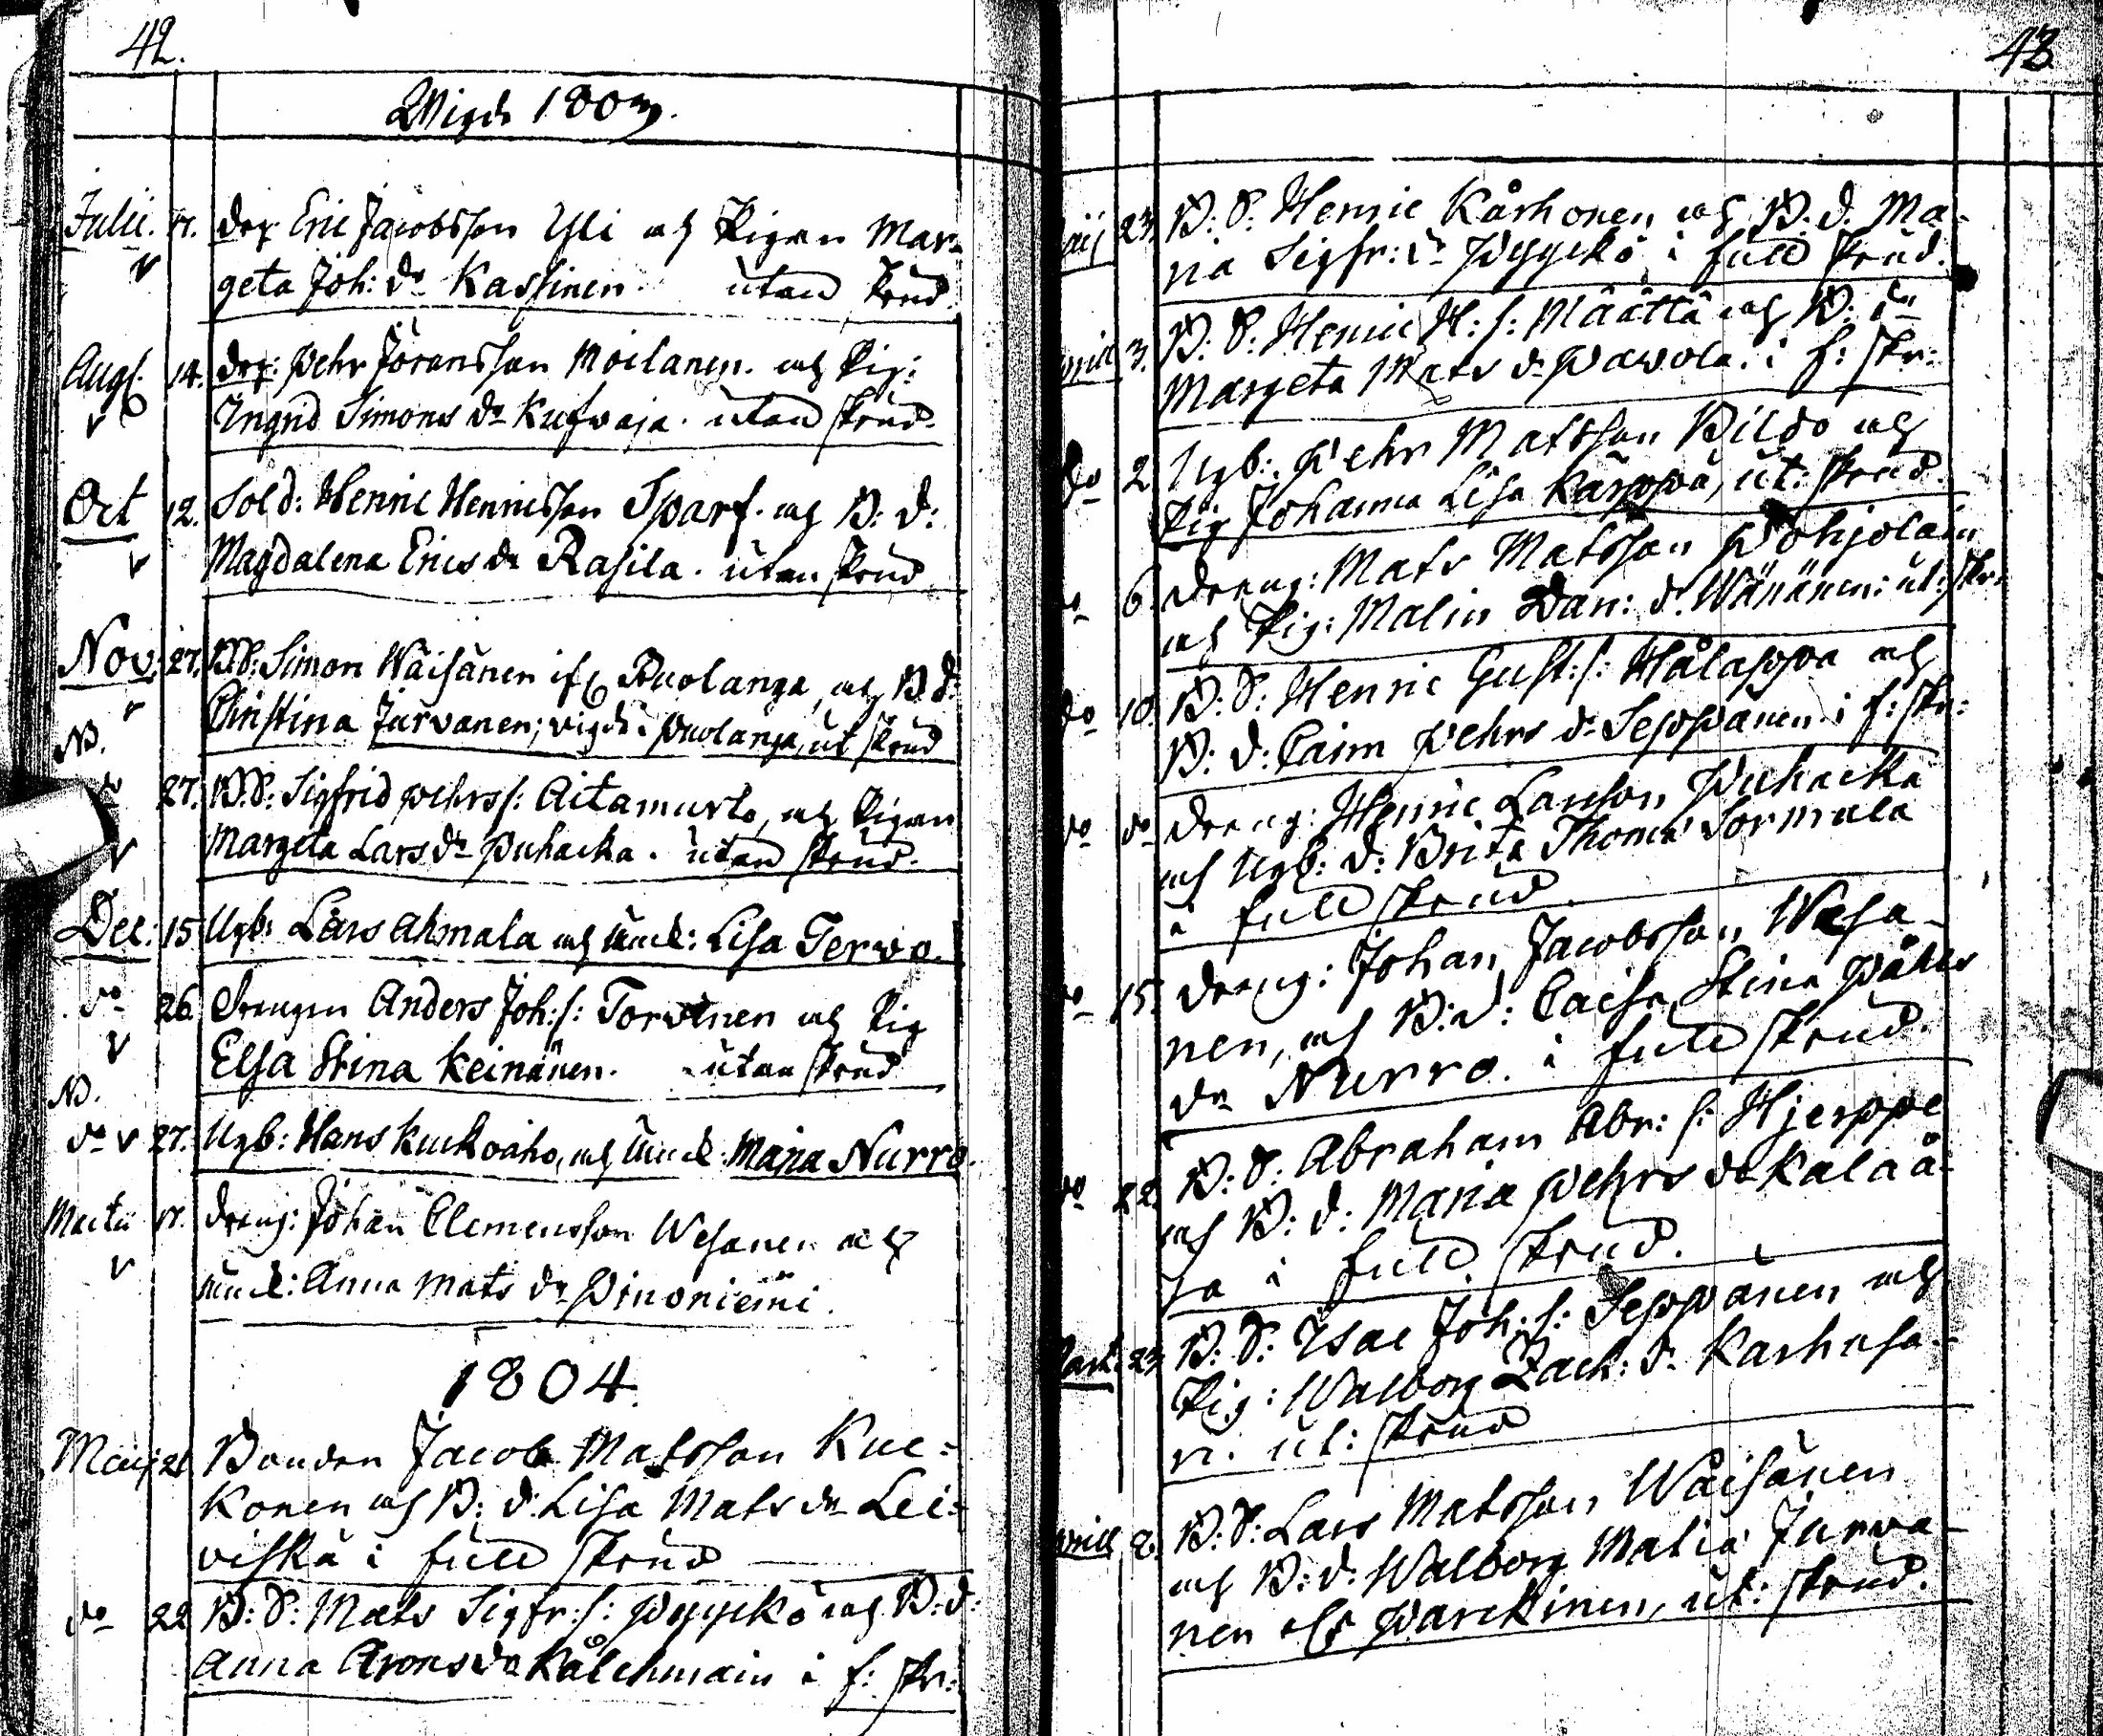 42.
Wigde 1803.
Julii. 17. Drg Eric Jacobsson Yli och Pigan Mar-
geta Joh: dr Kassinen. utan skrud.
Aug. 14. Drg: Pehr Göransson Moilanen. och Pig:
Ingrid Simons dr Kufwaja. utan skrud.
Oct 12. Sold: Henric Henricsson Sparf. och B: d:
Magdalena Erics dr Rasila. utan skrud
Nov. 27. B.S: Simon Wäisänen ifr Puolanga, och B. d:
Christina Järvanen; vigde i Puolanga, ut skrud
NB.
do 27. B.S: Sigfrid Pehrs s: Aitamurto, och Pigan
Margeta Lars dr Puhacka. utan skrud.
Dec: 15 Ugb: Lars Ahmala och Enck: Lisa Terwo.
do 26. Drengen Anders Joh: s: Torvinen och Pig
Elsa Stina Keinänen. utan skrud
NB.
do 27. Ugb: Hans Kuckoaho, och Enck: Maja Nurro.
Martii 17. Dreng: Johan Clemensson Wesanen och
Enck: Anna Mats dr Pinoniemi.
1804.
Maij 21 Bonden Jacob Matsson Kuc-
konen och B: d: Lisa Mats dr Lei-
viskä i full skrud
do 22 B: S: Mats Sigfr: s: Pyyckö och B: d:
Anna Arons dr Kålehmain i f: skr:
43
Maij 23. B: S: Henric Kårhonen och B. d. Ma-
ria Sigfr: dr Pyyckö i full skrud.
3. B: S: Henric H: s: Määttä och B: dr
Margeta Mats dr Pavola. i f: skr:
do 2 Ugb: Pehr Matsson Bildo och
Pig Johanna Lisa Käsppä, ut: skrud.
do 6. Dreng: Mats Matsson Pohjolain
och Pig: Malin Dan: d. Wänänen: ut: skr:
do 10. B: S: Henric Gust: s: Hålappa och
B: d: Carin Pehrs dr Seppänen i f: skr:
do do Dreng: Henric Larsson Puhacka
och Ugb: d: Brita Thoma Sormula
i full skrud.
do 15. Dreng: Johan Jacobsson Wesa-
nen, och B: d: Caisa Stina Påhls
dr Nurro. i full skrud.
do 22. B: S: Abraham Abr: s: Hjerppe
och B: d: Maria Pehrs dr Kalaå-
ja i full skrud.
Mart. 23 B: S: Isac Joh: s: Seppänen och
Pig: Walborg Zach: dr Karhusa-
ri. ut: skrud
2. B: S: Lars Matsson Wäisänen
och B: d: Walborg Matia Jurva-
nen elr Parckinen, ut: skrud.